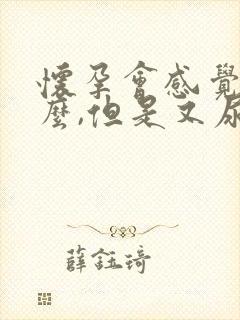 懷孕會感覺
麼,但是又尿
薛鈺琦